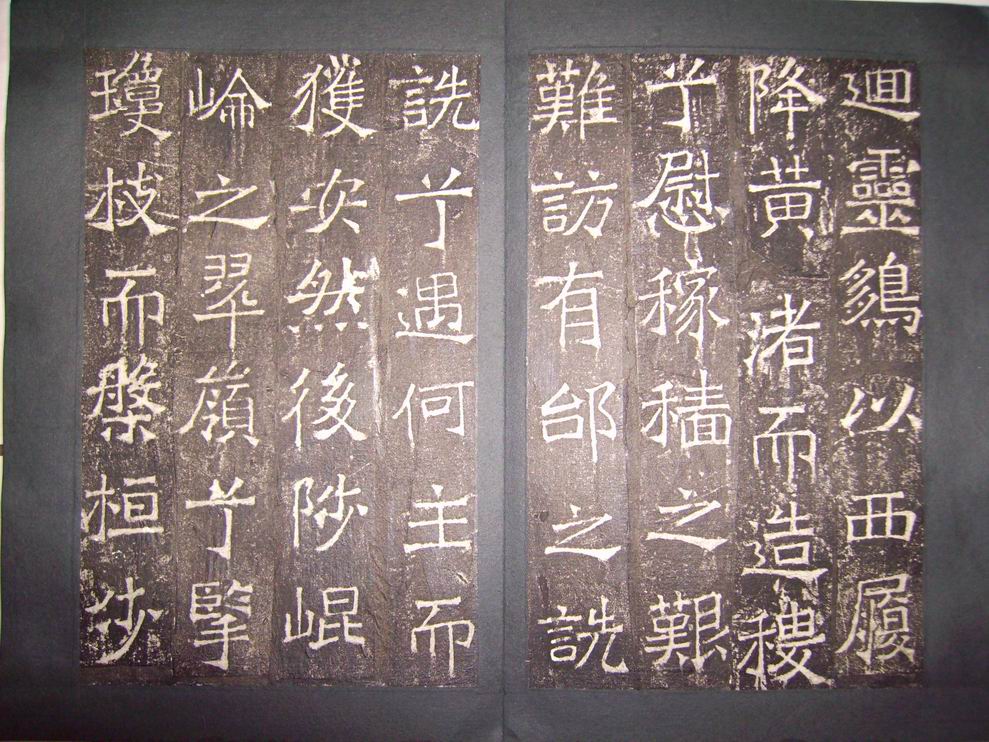 迴靈以西履
降黃渚而造稷
兮慰稼穡之艱
難訪有邰之詵
詵兮遇何主而
獲安然後陟崐
崘之翠嶺兮擥
瓊枝而槃桓步